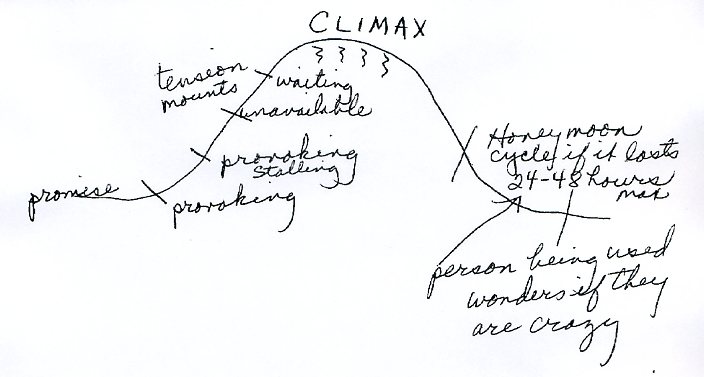 CLIMAX
tension
mounts
waiting
unavailable
provoking
stalling
promise
provoking
Honeymoon
cycle if it lasts
24-48 hours
max
person being used
wonders if they
are crazy